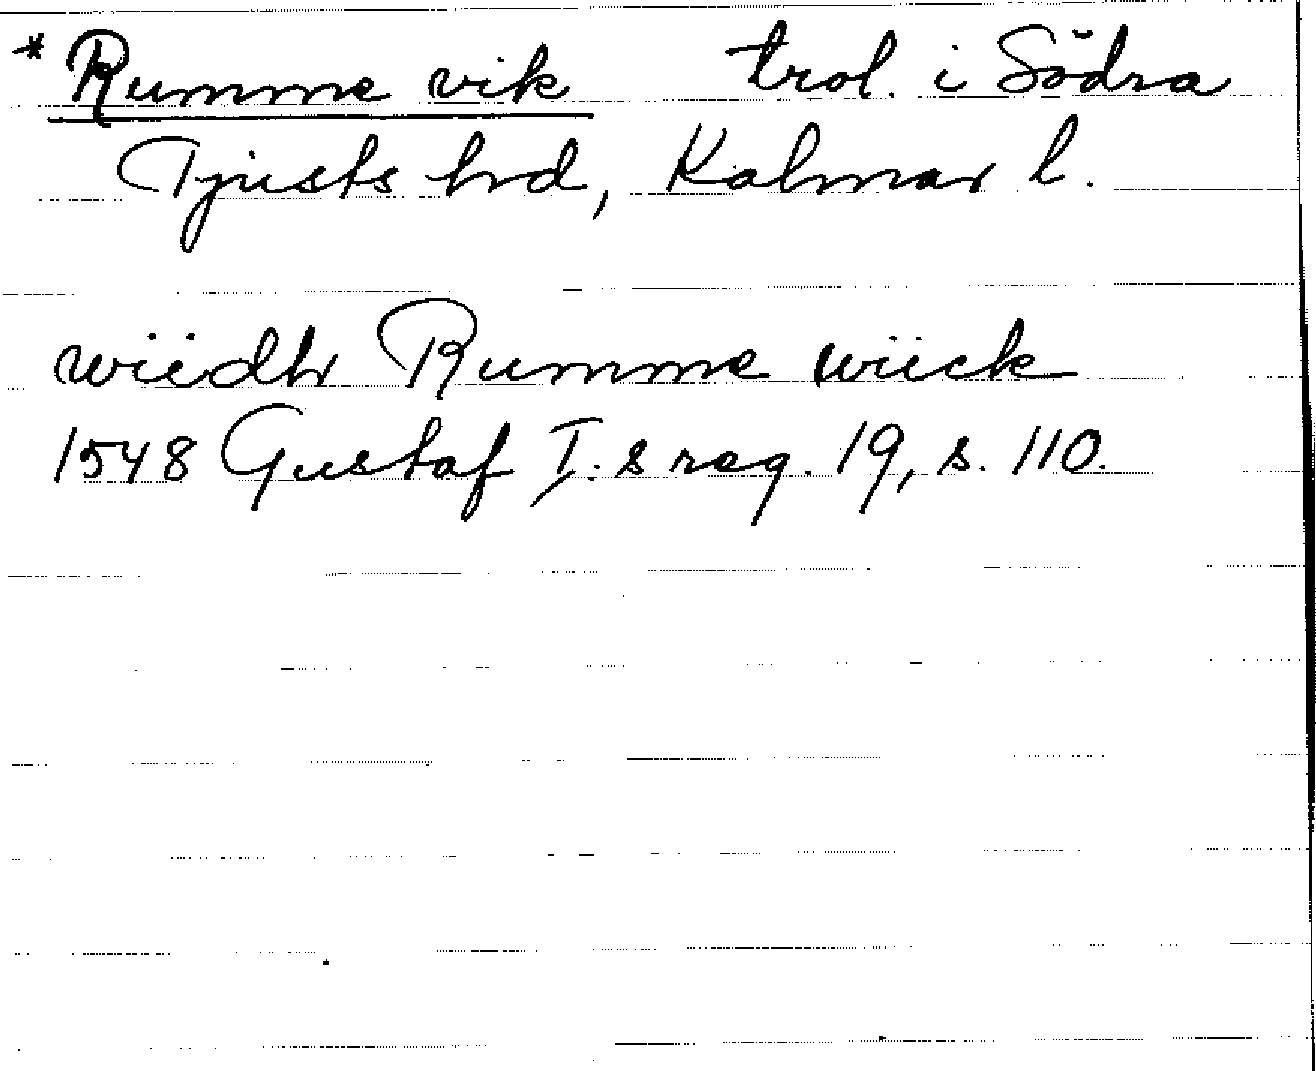 * Rumme vik trol. i Södra
Tjusts hrd, Kalmar l.
wiidhr Rumme wiick
1548 Gustaf I:s reg. 19, s. 110.